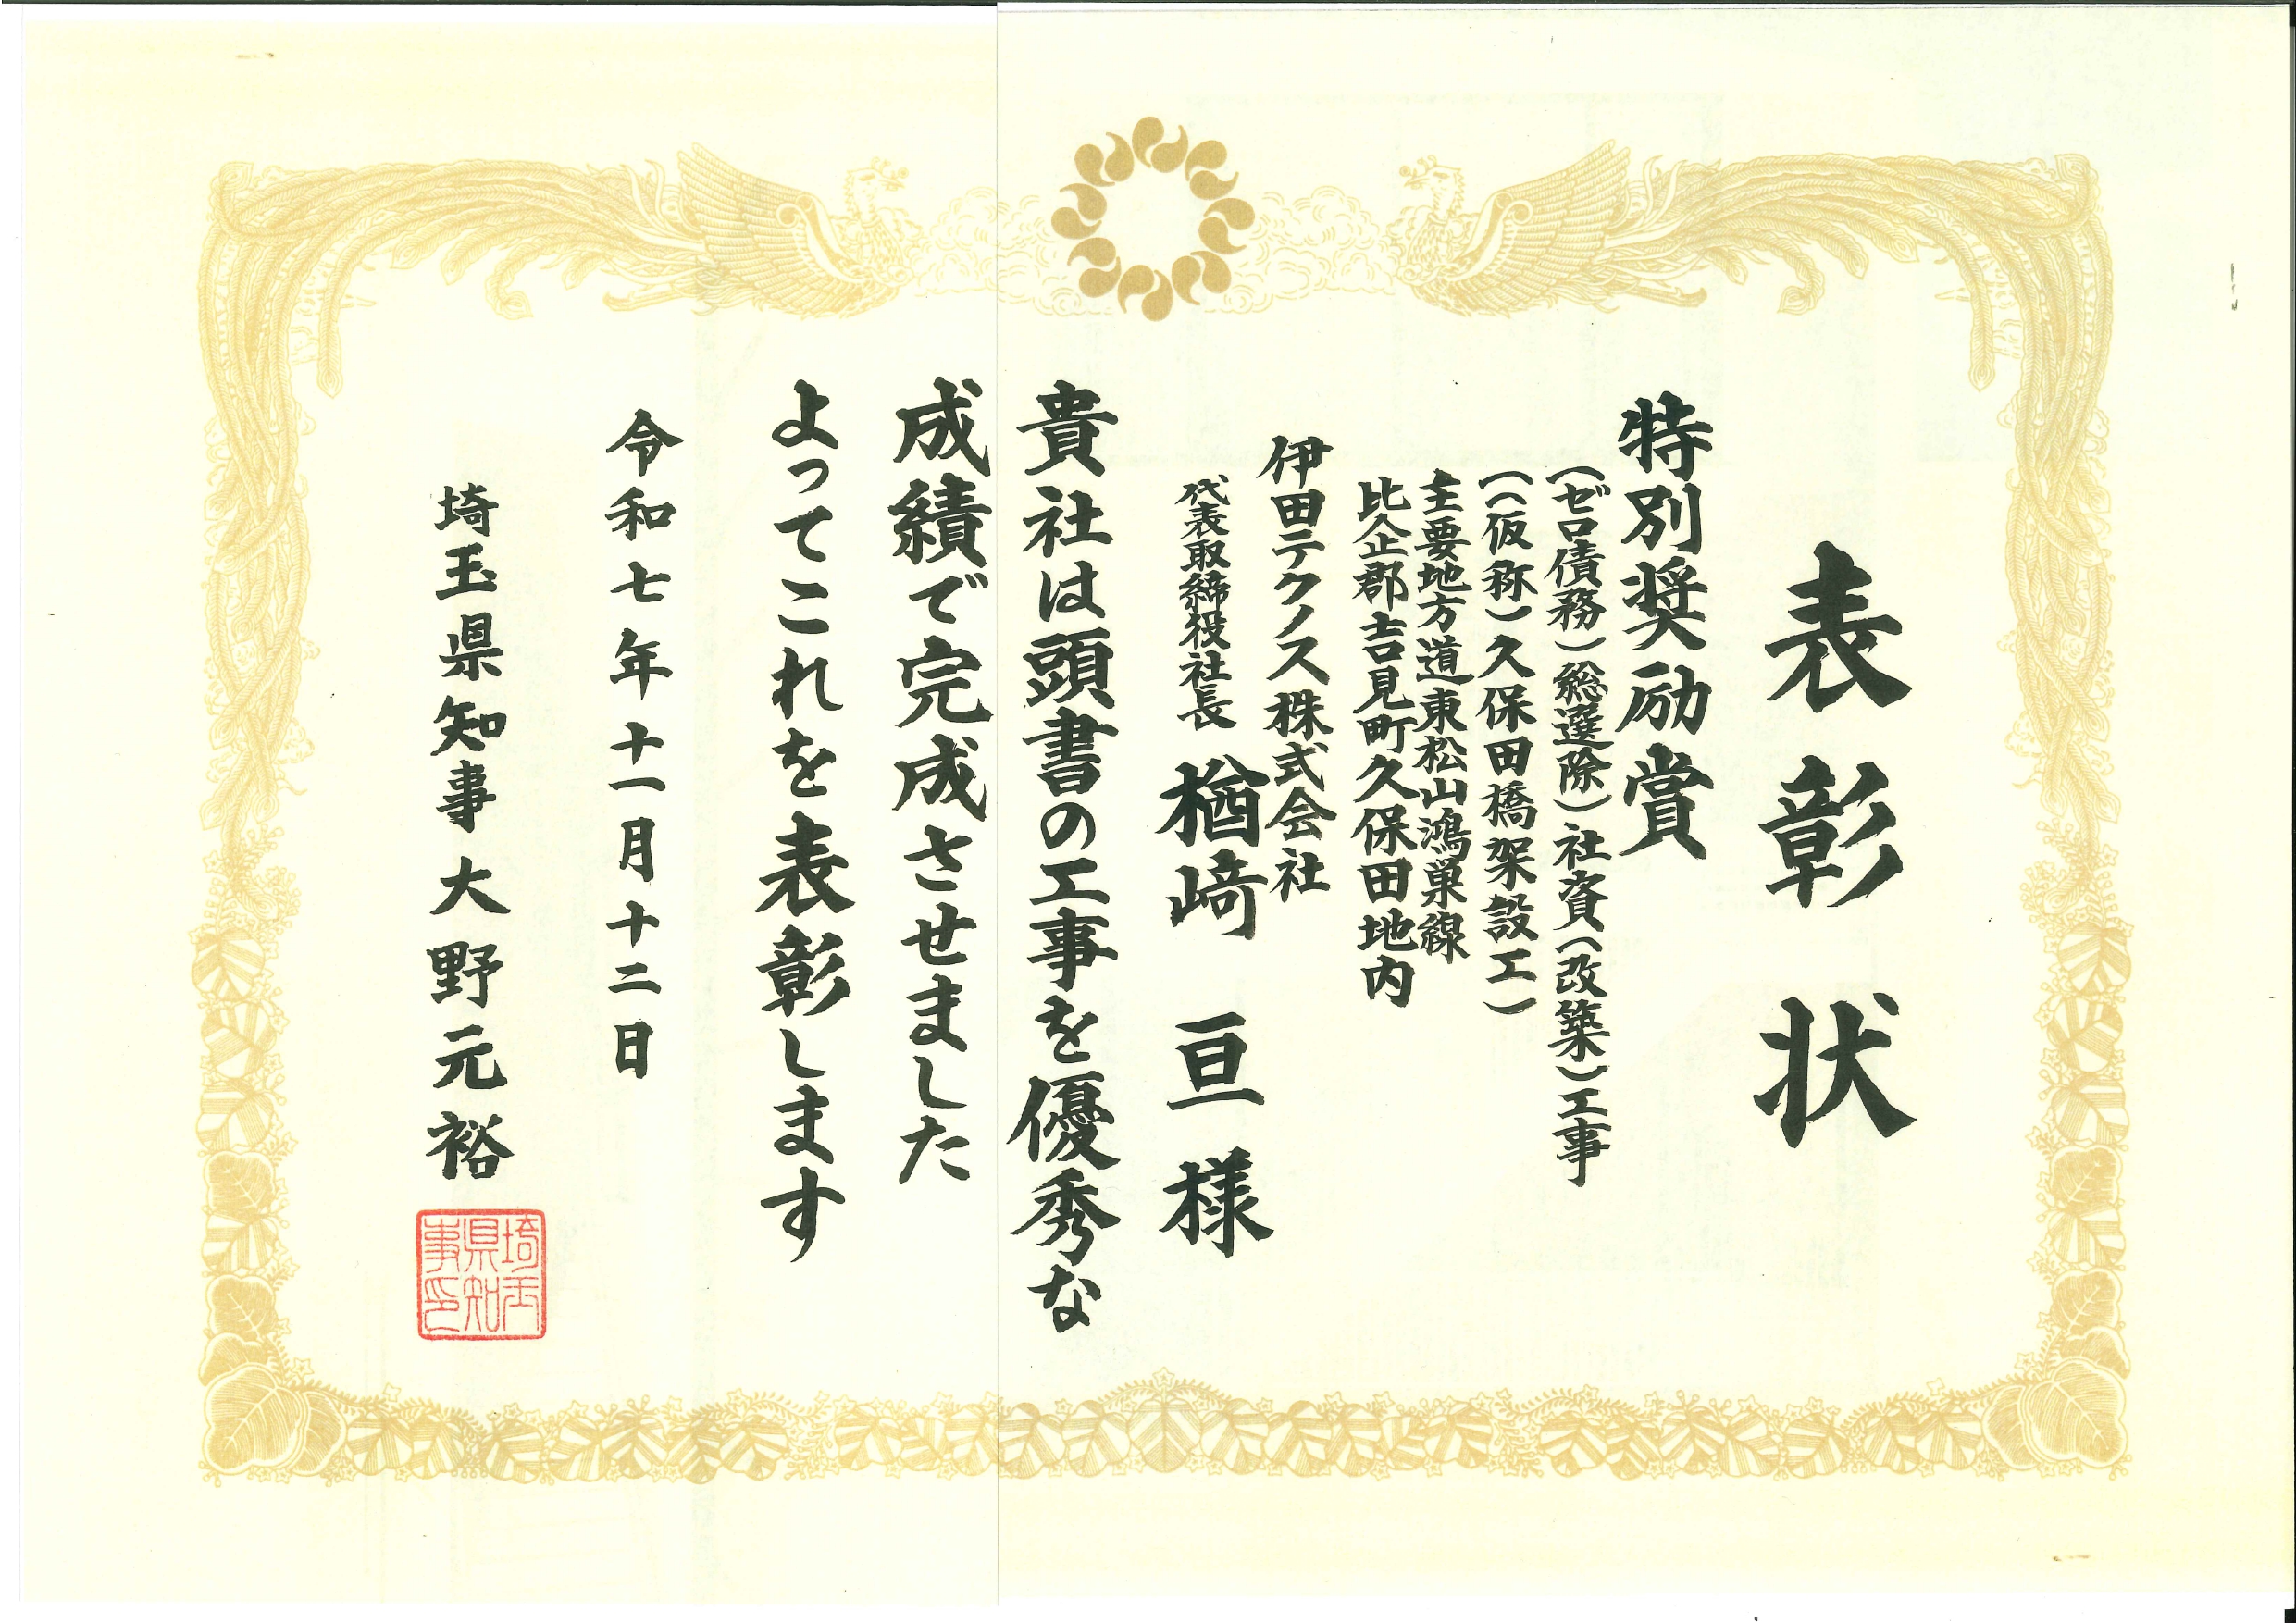 表彰状
特別奨励賞
(ゼロ債務)総選除)社資(改築)工事
((仮称)久保田橋架設工)
主要地方道東松山鴻巣線
比企郡吉見町久保田地内
伊田テクノス株式会社
代表取締役社長 楢崎 亘 様
貴社は頭書の工事を優秀な
成績で完成させました
よってこれを表彰します
令和七年十一月十二日
埼玉県知事 大野元裕
埼玉県知事印